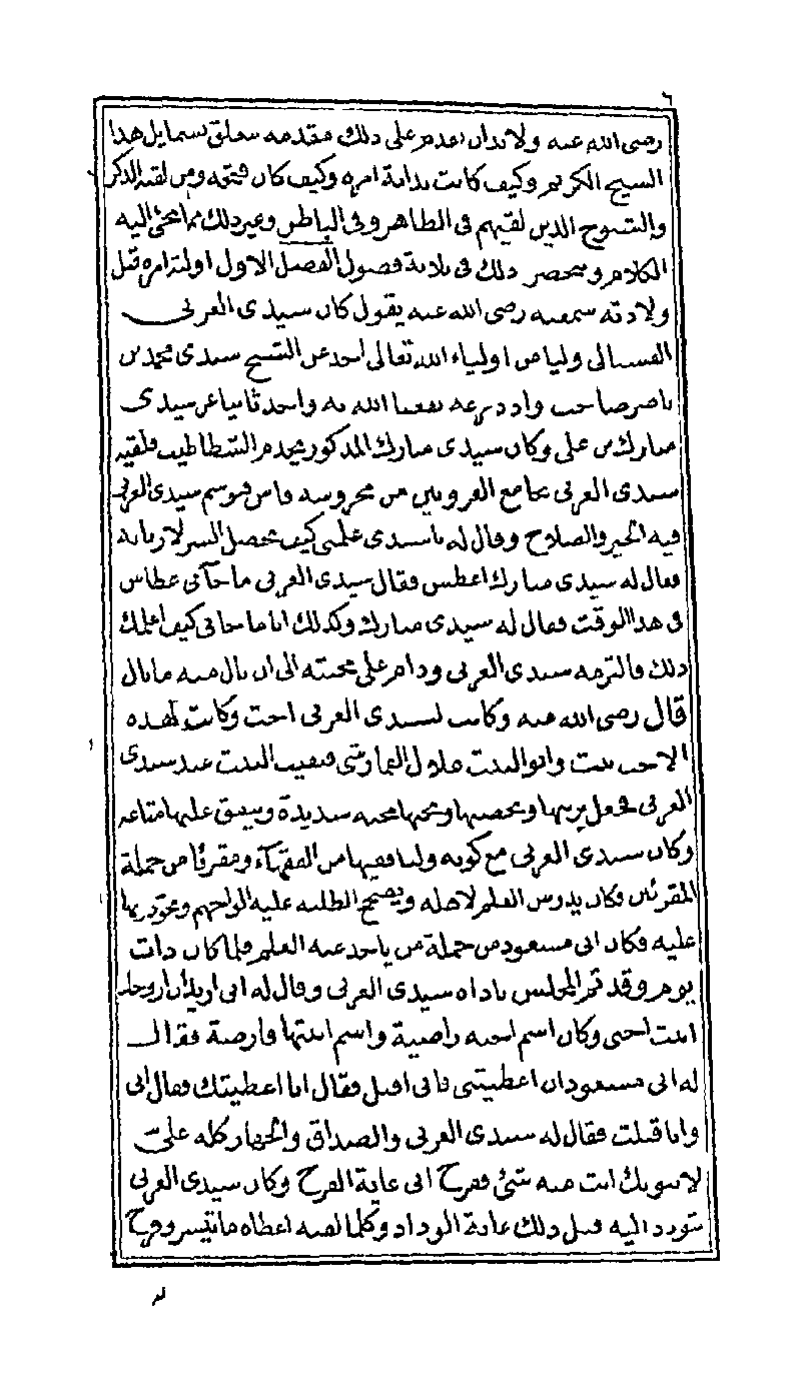 رضى الله عنه ولابد ان نقدم على ذلك مقدمه تتعلق بشمايل هذا
الشيخ الكريم وكيف كانت بداية امره وكيف كان فتحه ومن لقنه الذكر
والشيوخ الذين لقيهم فى الظاهر وفى الباطن وغير ذلك مما ينجر اليه
الكلام وينحصر ذلك فى ثلاثة فصول الفصل الاول اولية امره قبل
ولادته سمعته رضى الله عنه يقول كان سيدى العربى
الفشتالى وليا من اولياء الله تعالى اخذ عن الشيخ سيدى محمد بن
ناصر صاحب وادى درعه نفعنا الله به واخذ ثانيا عن سيدى
مبارك بن على وكان سيدى مبارك المذكور يخدم الشطاطيب فلقيه
سيدى العربى بجامع القرويين من محروسه فاس فتوسم سيدى العربى
فيه الخير والصلاح وقال له ياسيدى علمنى كيف يحصل السر لاربابه
فقال له سيدى مبارك اعطس فقال سيدى العربى ما جآنى عطاس
فى هذا الوقت فقال له سيدى مبارك وكذلك انا ما جانى كيف اعلمك
ذلك فالتزمه سيدى العربى ودام على محبته الى ان نال منه ما نال
قال رضى الله عنه وكانت لسيدى العربى اخت وكانت لهذه
الاخت بنت وابو البنت علال القمارشى فبقيت البنت عند سيدى
العربى فجعل يربيها ويحضنها ويحبها محبه شديدة وينفق عليها متاعه
وكان سيدى العربى مع كونه وليا فقيها من الفقهآء ومقرئا من جملة
المقرئين فكان يدرس العلم لاهله ويصحح الطلبه عليه الواحهم ويجودونها
عليه فكان ابى مسعود من جملة من ياخذ عنه العلم فلما كان ذات
يوم وقد تم المجلس ناداه سيدى العربى وقال له انى اريد ان ازوجك
ابنت اختى وكان اسم اخته راضية واسم ابنتها فارحة فقال
له ابى مسعود ان اعطيتنى فانى اقبل فقال انا اعطيتك فقال ابى
وانا قبلت فقال له سيدى العربى والصداق والجهاز كله على
لا ينوبك انت منه شئ ففرح ابى غاية الفرح وكان سيدى العربى
يتودد اليه قبل ذلك غاية الوداد وكلما لقيه اعطاه ما تيسر وفرح